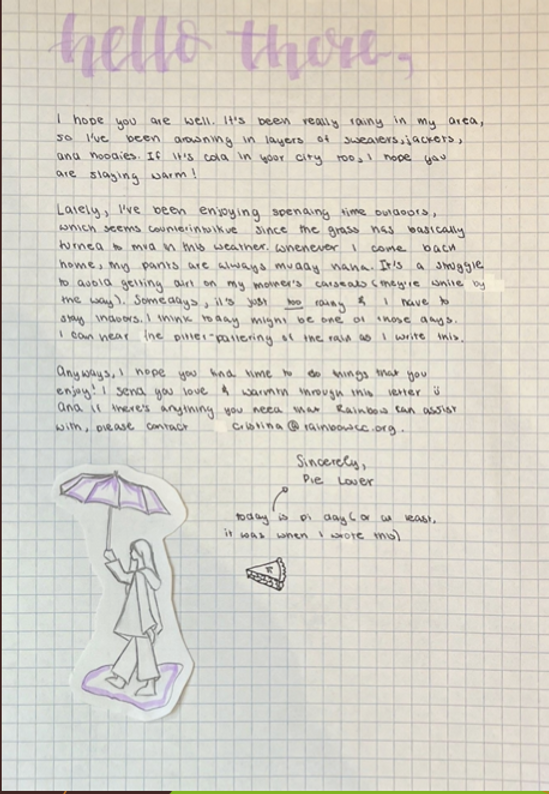 hello there,
I hope you are well. It's been really rainy in my area,
so I've been drowning in layers of sweaters, jackets,
and hoodies. If it's cold in your city too, I hope you
are staying warm!
Lately, I've been enjoying spending time outdoors,
which seems counterintuitive since the grass has basically
turned to mud in this weather. Whenever I come back
home, my pants are always muddy haha. It's a struggle
to avoid getting dirt on my mother's carseats (they're white by
the way). Somedays, it's just too rainy & I have to
stay indoors. I think today might be one of those days.
I can hear the pitter-pattering of the rain as I write this.
Anyways, I hope you find time to do things that you
enjoy! I send you love & warmth through this letter ü
and if there's anything you need that Rainbow can assist
with, please contact Cristina@rainbowcc.org.
Sincerely,
Pie Lover
today is pi day (or at least,
it was when I wrote this)
π